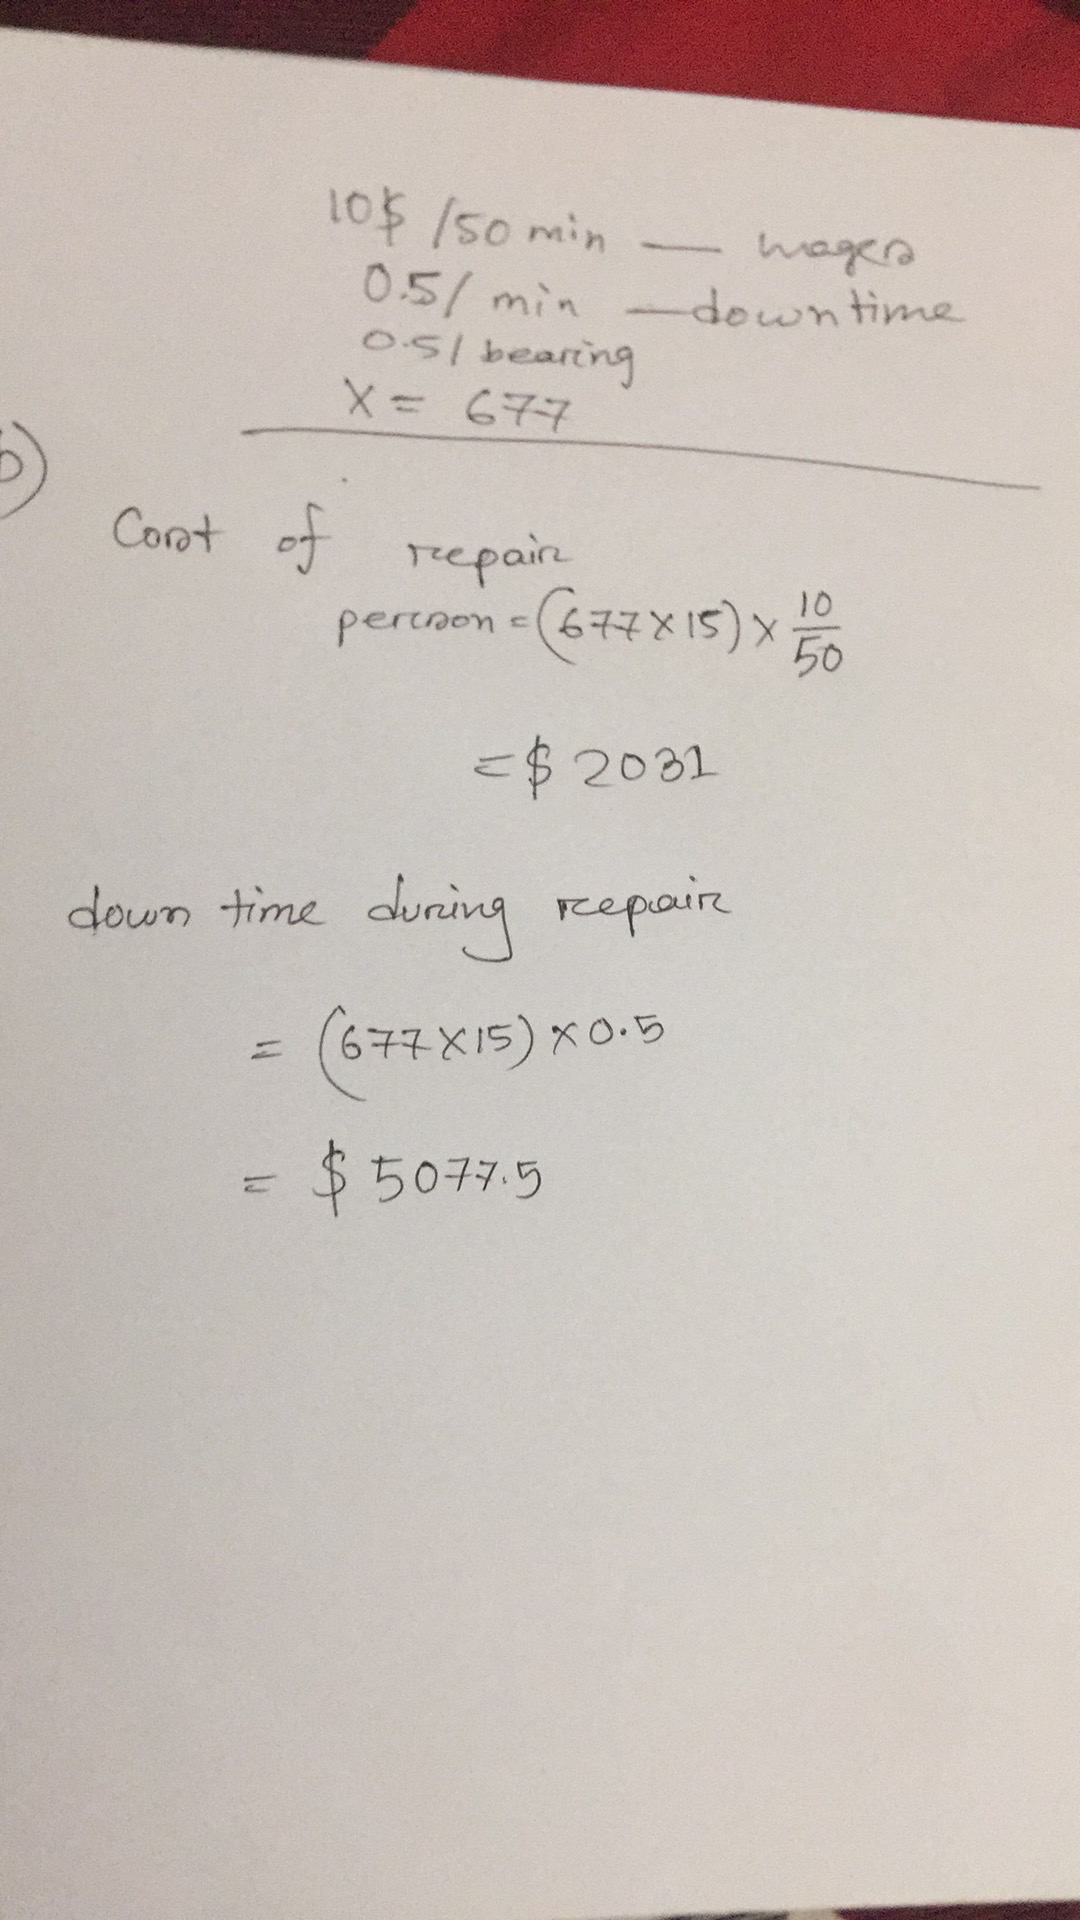 10$ /50 min — wages
0.5/ min — down time
0.5/ bearing
X = 677
b)
Cost of repair
person = (677 × 15) × 10/50
= $ 2031
down time during repair
= (677 × 15) × 0.5
= $ 5077.5